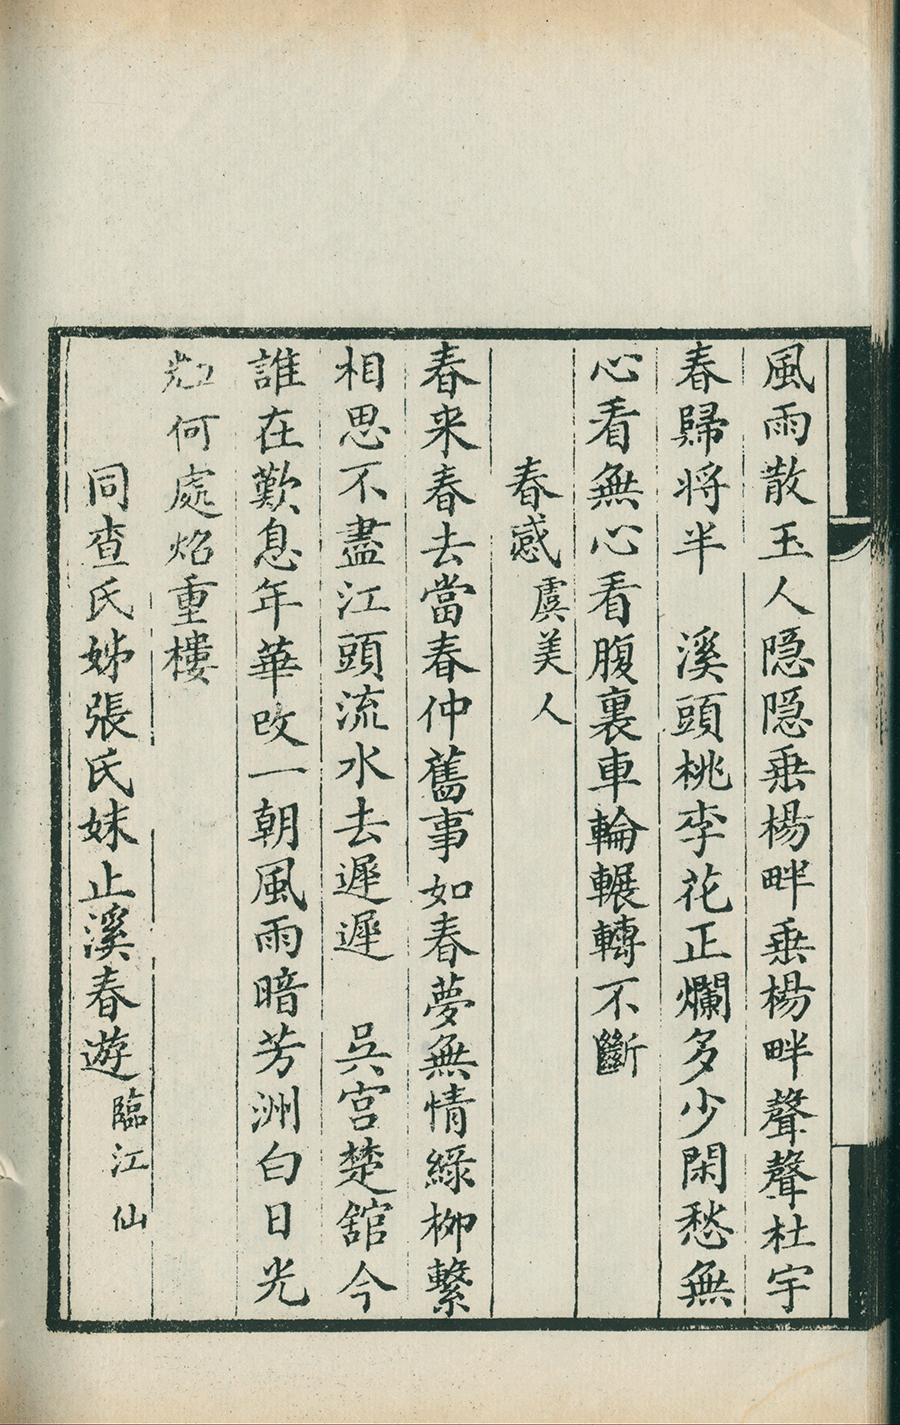 風雨散玉人隱隱垂楊畔垂楊畔聲聲杜宇
春歸将半　溪頭桃李花正爛多少閑愁無
心看無心看腹裏車輪輾轉不斷
春感虞美人
春来春去當春仲舊事如春夢無情綠柳繫
相思不盡江頭流水去遲遲　吳宫楚舘今
誰在歎息年華改一朝風雨暗芳洲白日光
何處焰重樓
同查氏姊張氏妹止溪春遊臨江仙